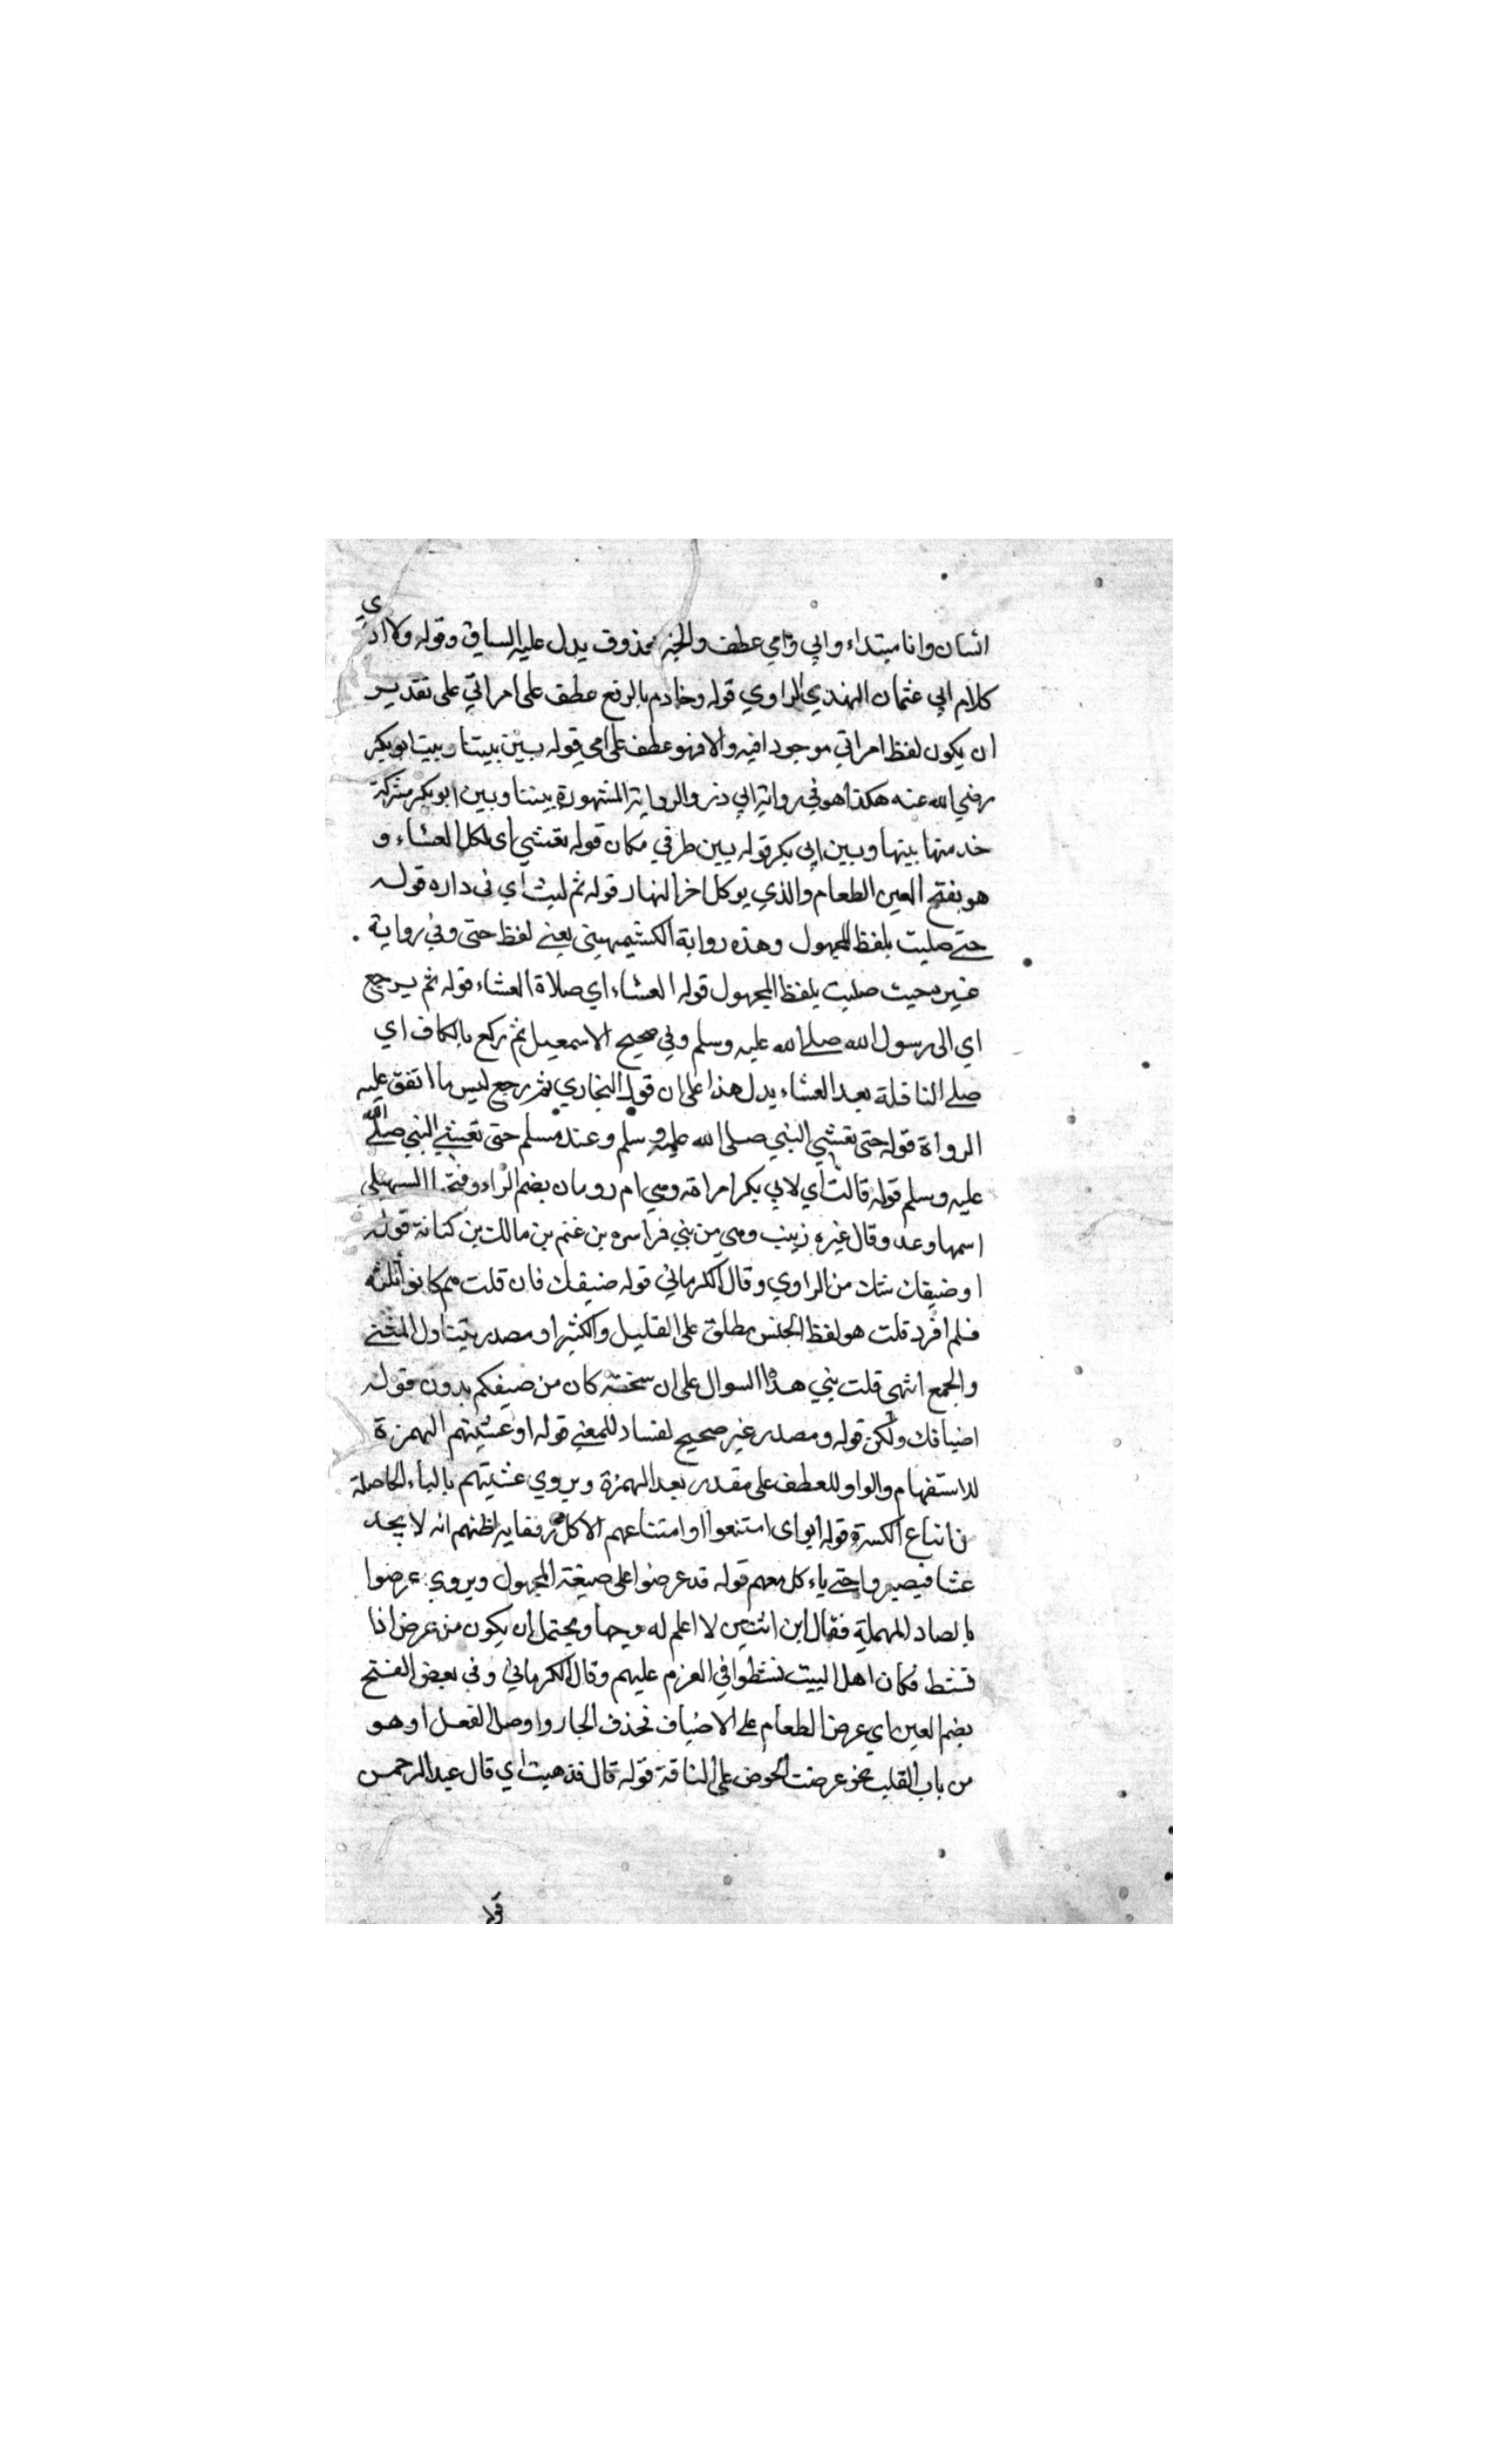 انسان وانا مبتداء وابي وامي عطف والخبر محذوف يدل عليه السياق وقوله ولا ادري
كلام ابي عثمان النهدي الراوي قوله وخادم بالرفع عطف على امراتي على تقدير
ان يكون لفظ امراتي موجودا فيه والا فهو عطف على امي قوله بين بيتنا وبيت ابو بكر
رضي الله عنه هكذا هو في رواية ابي ذر والرواية المشهورة بيننا وبين ابو بكر مشركة
خدمتها بيتها وبين ابي بكر قوله بين ظرفي مكان قوله تعشي اى اكل العشاء و
هو بفتح العين الطعام والذي يوكل اخر النهار قوله ثم لبث اي فى داره قوله
حتى صليت بلفظ المجهول وهذه رواية الكشيمهينى يعني لفظ حتى وفي رواية
غيره حيث صليت بلفظ المجهول قوله العشاء اي صلاة العشاء قوله ثم يرجع
اي الى رسول الله صلى الله عليه وسلم وفي صحيح الاسمعيل ثم ركع بالكاف اي
صلى النافلة بعد العشاء يدل هذا على ان قول البخاري ثم رجع ليس ما اتفق عليه
الرواة قوله حتى تعشي النبي صلى الله عليه وسلم وعند مسلم حتى تعشي النبي صلى الله
عليه وسلم قوله قالت اي لابي بكر امراته وهي ام رومان بضم الراء وفتحها السهيلي
اسمها وعد وقال غيره زينب وهي من بني فراسه بن غنم بن مالك بن كنانة قوله
او ضيفك شك من الراوي وقال الكرماني قوله ضيفك فان قلت هم كانوا ثلثه
فلم افرد قلت هو لفظ الجنس مطلق على القليل والكثير او مصدر يتناول المثنى
والجمع انتهى قلت بني هذا السوال على ان نسخته كان من ضيفكم بدون قوله
اضيافك ولكن قوله ومصدر غير صحيح لفساد المعنى قوله او عشيتهم الهمزة
للاستفهام والواو للعطف على مقدر بعد الهمزة ويروي عشيتهم بالياء الحاصلة
من اتباع الكسرة قوله ابو اى امتنعوا وامتناعهم الاكل رفقا به لظنهم انه لا يجد
عشا فيصيروا حتى ياء كل معهم قوله قد عرضوا على صيغة المجهول ويروي عرضوا
بالصاد المهملة فقال ابن التين لا اعلم له وجها ويحتمل ان يكون من عرض اذا
نشط فكان اهل البيت نشطوا في العزم عليهم وقال الكرماني وفى بعض الفتح
بضم العين اي عرض الطعام على الاضياف فحذف الجار واوصل الفعل او هو
من باب القلب نحو عرضت الحوض على الناقة قوله قال فذهبت اي قال عبد الرحمن